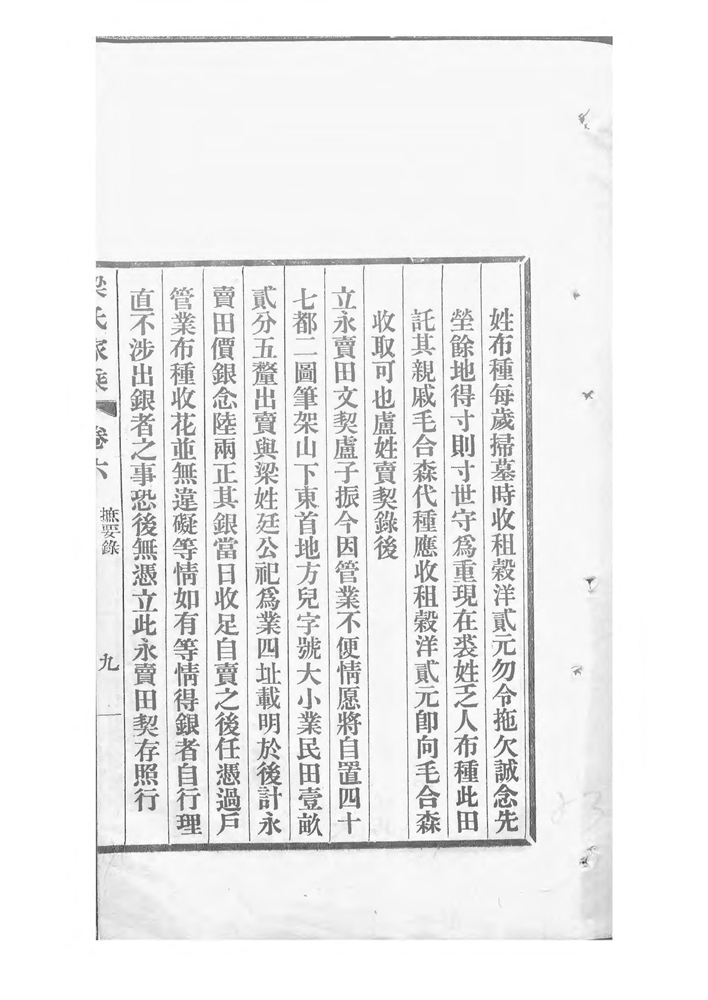 姓布種每歲掃墓時收租穀洋貳元勿令拖欠誠念先
塋餘地得寸則寸世守爲重現在裘姓乏人布種此田
託其親戚毛合森代種應收租穀洋貳元卽向毛合森
收取可也盧姓賣契錄後
立永賣田文契盧子振今因管業不便情愿將自置四十
七都二圖筆架山下東首地方兒字號大小業民田壹畝
貳分五釐出賣與梁姓廷公祀爲業四址載明於後計永
賣田價銀念陸兩正其銀當日收足自賣之後任憑過戶
管業布種收花並無違礙等情如有等情得銀者自行理
直不涉出銀者之事恐後無憑立此永賣田契存照行
梁氏家乘 卷六 摭要錄 九
83